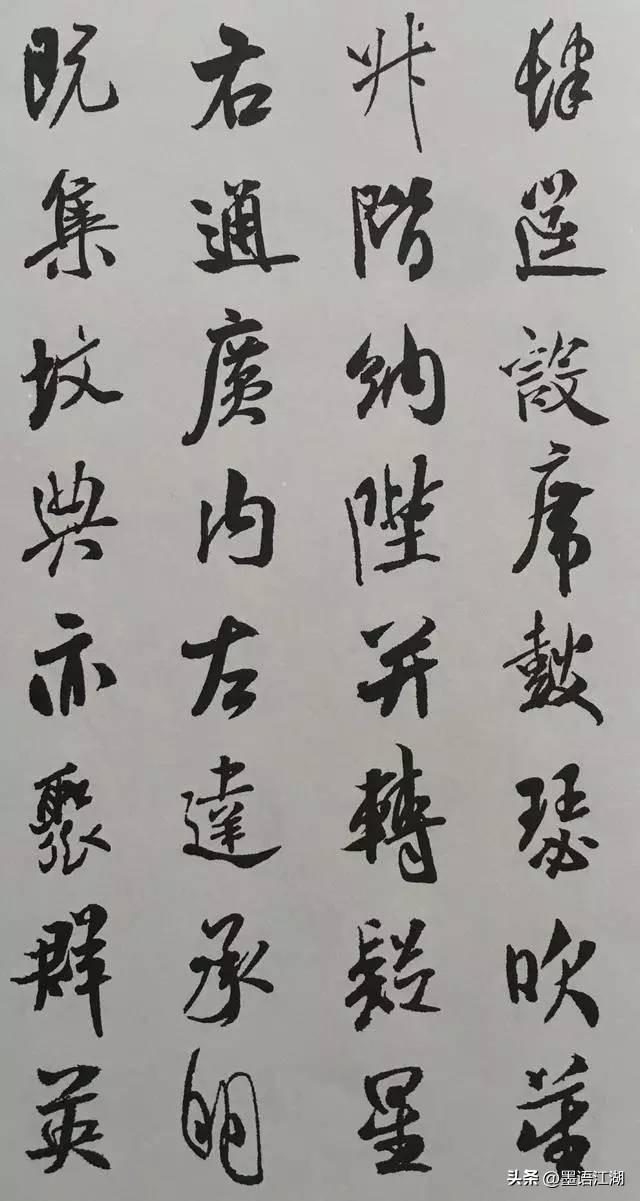 肆筵設席鼓瑟吹笙
升階納陛弁轉疑星
右通廣内左達承明
既集墳典亦聚群英
头条 @墨语江湖